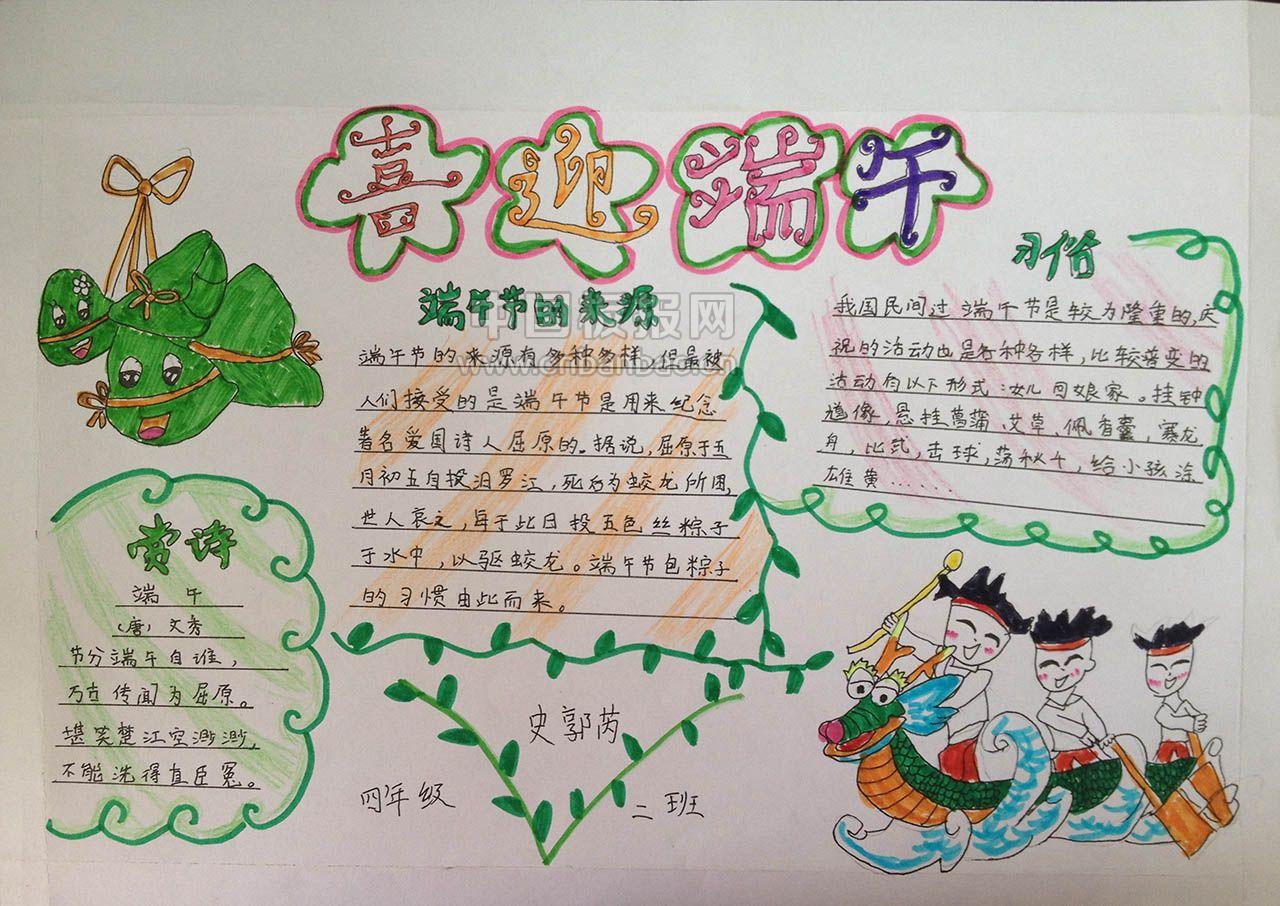 喜迎端午
端午节的来源
端午节的来源有多种多样,但最被
人们接受的是端午节是用来纪念
著名爱国诗人屈原的。据说,屈原于五
月初五自投汨罗江,死后为蛟龙所困,
世人哀之,每于此日投五色丝粽子
于水中,以驱蛟龙。端午节包粽子
的习惯由此而来。
习俗
我国民间过端午节是较为隆重的,庆
祝的活动也是各种各样,比较普变的
活动有以下形式:女儿回娘家。挂钟
道像,悬挂菖蒲、艾草、佩香囊,赛龙
舟,比武,击球,荡秋千,给小孩涂
雄黄......
赏诗
端午
(唐)文秀
节分端午自谁,
万古传闻为屈原。
堪笑楚江空渺渺,
不能洗得直臣冤。
史郭芮
四年级 二班
中国板报网